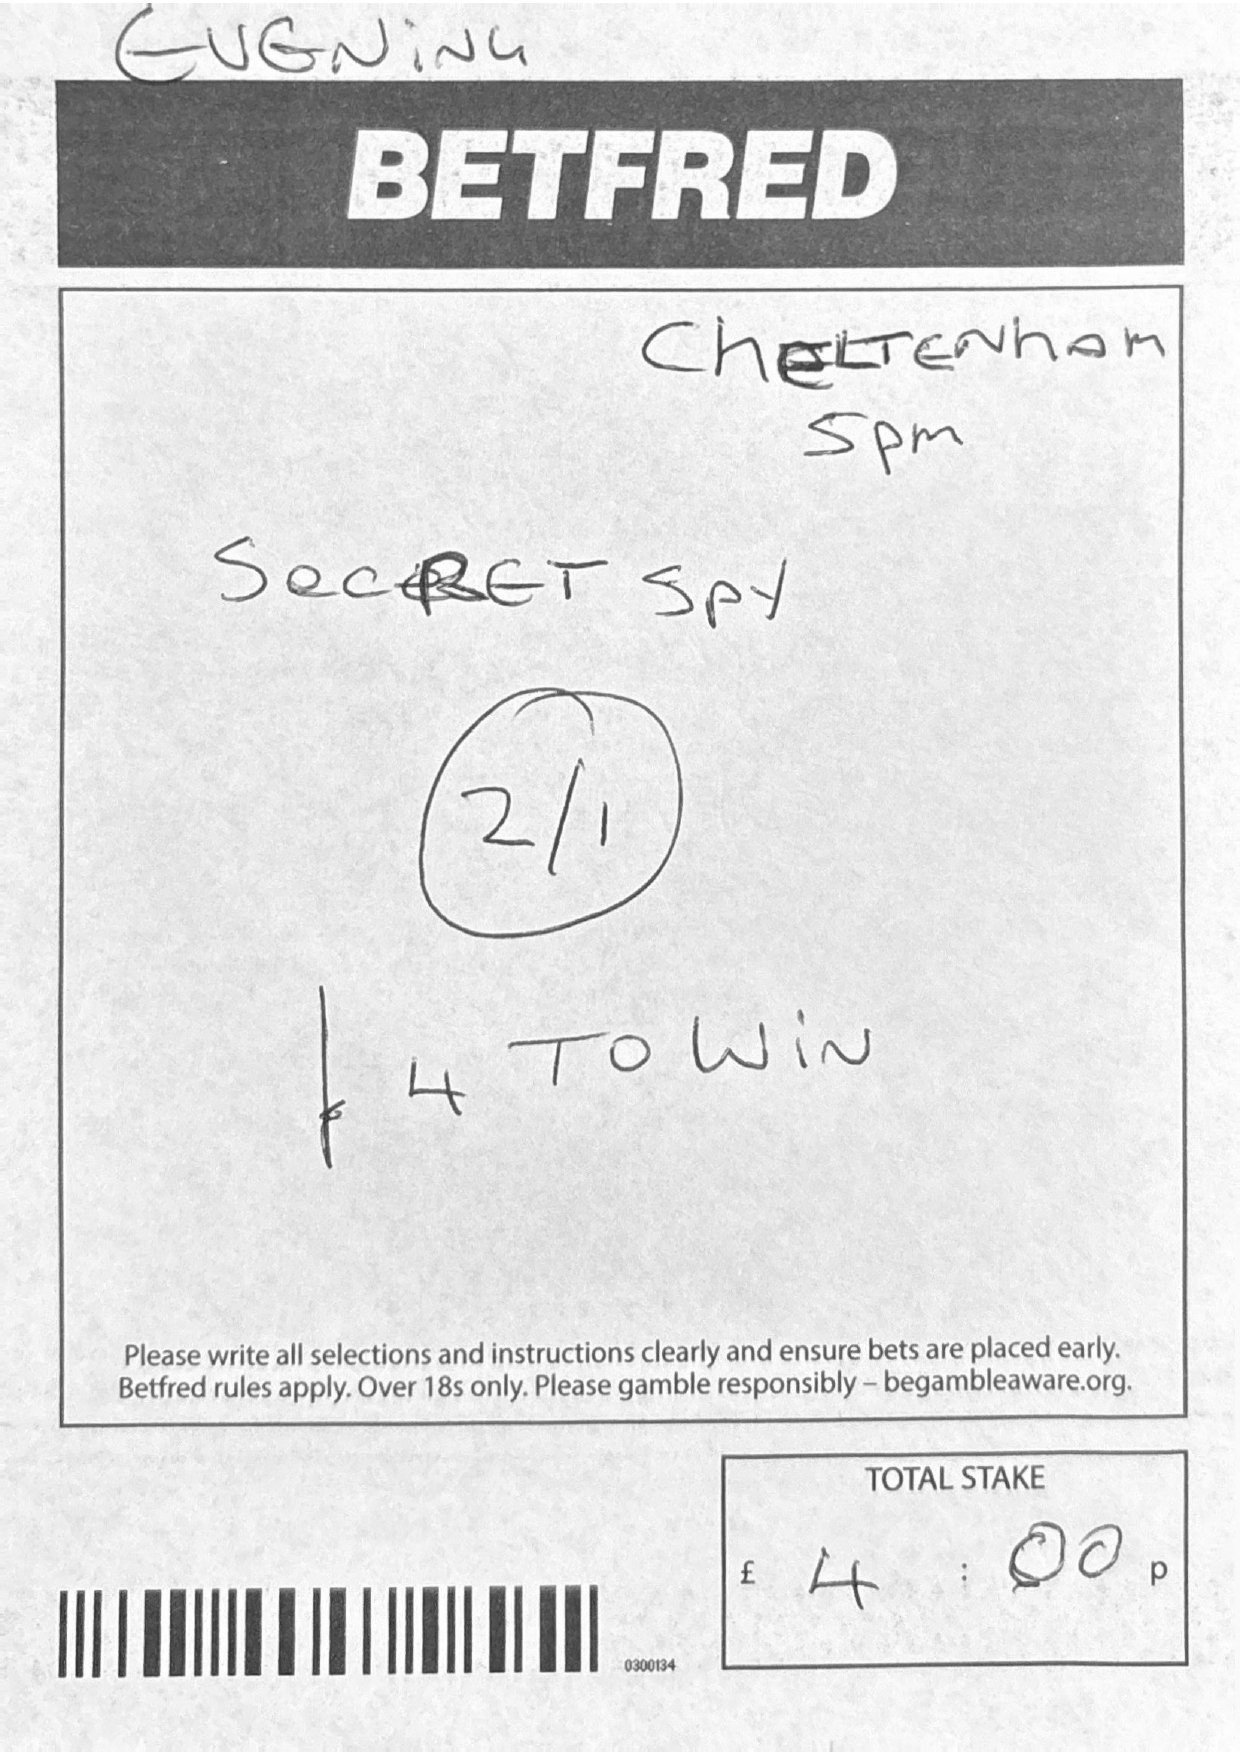 EVENING
BETFRED
ChELTENham
5pm
SecRET Spy
2/1
£4 TO WiN
Please write all selections and instructions clearly and ensure bets are placed early.
Betfred rules apply. Over 18s only. Please gamble responsibly – begambleaware.org.
TOTAL STAKE
£ 4 : 00 p
0300134